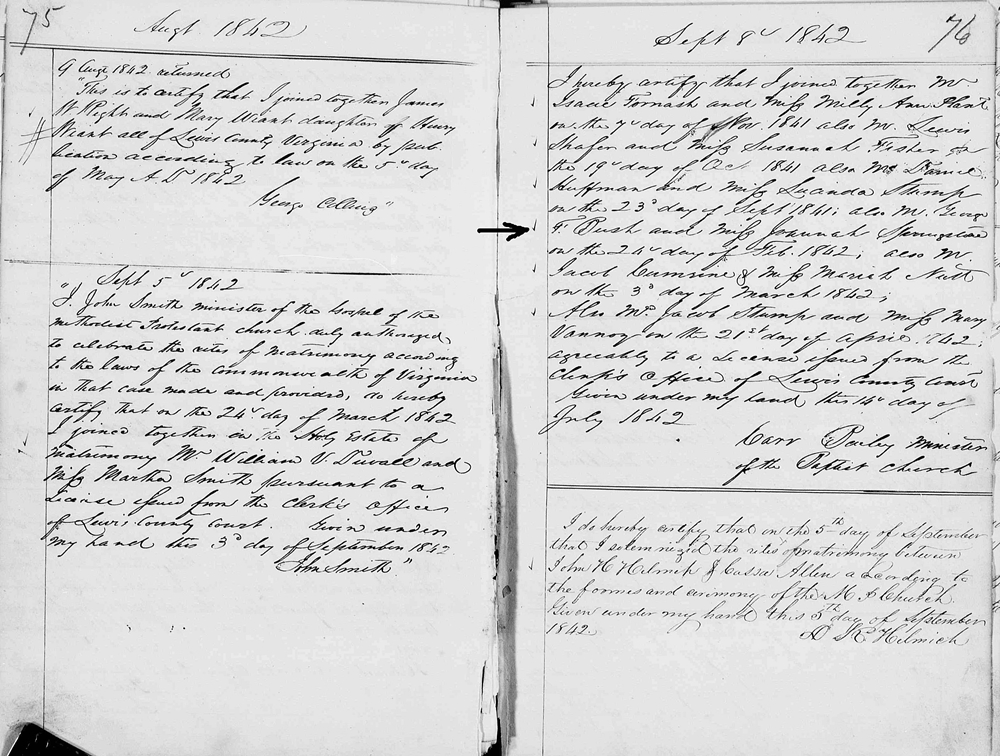 75
Augt 1842
9 Augt 1842 returned
"This is to certify that I joined together James
W Wright and Mary Wiant daughter of Henry
Wiant all of Lewis County Virginia by pub
lication according to law on the 5th day
of May A. D. 1842
George Collins"
" Sept 5th 1842
I. John Smith minister of the Gospel of the
methodist Protestant church duly authorized,
to celebrate the rites of matrimony according
to the laws of the commonwealth of Virginia
in that case made and provided, do hereby
certify that on the 24th day of March 1842
I joined together in the Holy Estate of
matrimony Mr William V. Duvall and
Miss Martha Smith pursuant to a
License issued from the Clerk's office
of Lewis County Court. Given under
my hand this 3d day of September 1842
John Smith"
76
Sept 8th 1842
I hereby certify that I joined together Mr
Isaac and Miss Milly Ann
on the 7th day of Nov. 1841 also Mr. Lewis
Shafer and Miss Susannah Fisher on
the 19th day of Oct 1841 also Mr Daniel
Huffman and Miss Lucinda Stump
on the 23d day of Sept 1841; also Mr. George
F. Bush and Miss Joannah Springstone
on the 24th day of Feb. 1842; also Mr.
Jacob & Miss Mariah Nutt
on the 3d day of March 1842;
Also Mr. Jacob Stump and Miss Mary
Vannoy on the 21st day of April 1842;
agreeably to a License issued from the
Clerk's office of Lewis County Court
Given under my hand this 14th day of
July 1842
Carr Bailey Minister
of the Baptist Church
I do hereby certify that on the 5th day of September
that I solemnized the rites of matrimony between
John H Helmick & Cassa Allen according to
the formes and cerimony of the M P Church
Given under my hand this 5th day of September
1842.
A K Helmick